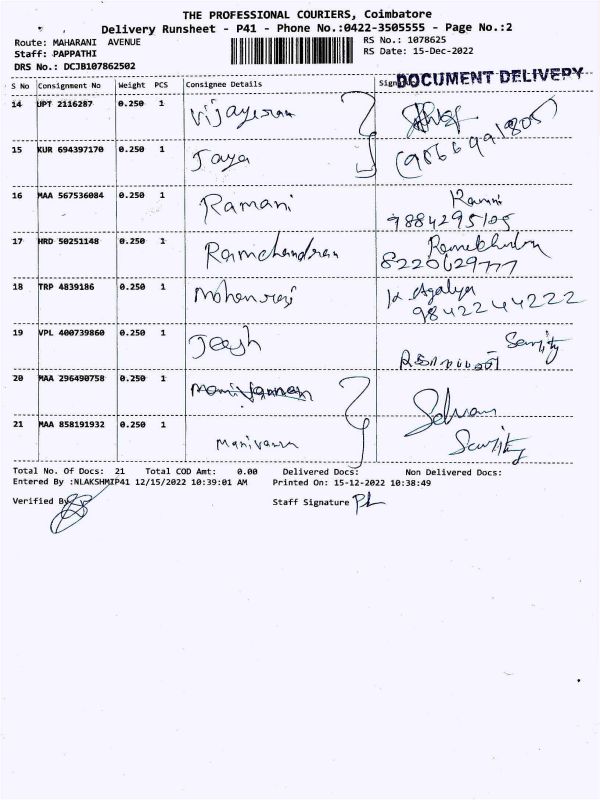 THE PROFESSIONAL COURIERS, Coimbatore
Delivery Runsheet - P41 - Phone No.:0422-3505555 - Page No.:2
Route: MAHARANI AVENUE
RS No.: 1078625
Staff: PAPPATHI
RS Date: 15-Dec-2022
DRS No.: DCJB107862502
DOCUMENT DELIVERY
S No Consignment No Weight PCS Consignee Details
14 UPT 2116287 0.250 1 Vijayesran
15 KUR 694397170 0.250 1 Jaya
16 MAA 567536084 0.250 1 Ramani
9884295105
17 HRD 50251148 0.250 1 Ramchandran
8220629777
18 TRP 4839186 0.250 1 Mohanraj K. Agalya
9842244222
19 VPL 400739860 0.250 1 Security
20 MAA 296490758 0.250 1 Manivannan Selvam
21 MAA 858191932 0.250 1 Manivanna Security
Total No. Of Docs: 21 Total COD Amt: 0.00 Delivered Docs: Non Delivered Docs:
Entered By :NLAKSHMIP41 12/15/2022 10:39:01 AM Printed On: 15-12-2022 10:38:49
Verified By
Staff Signature